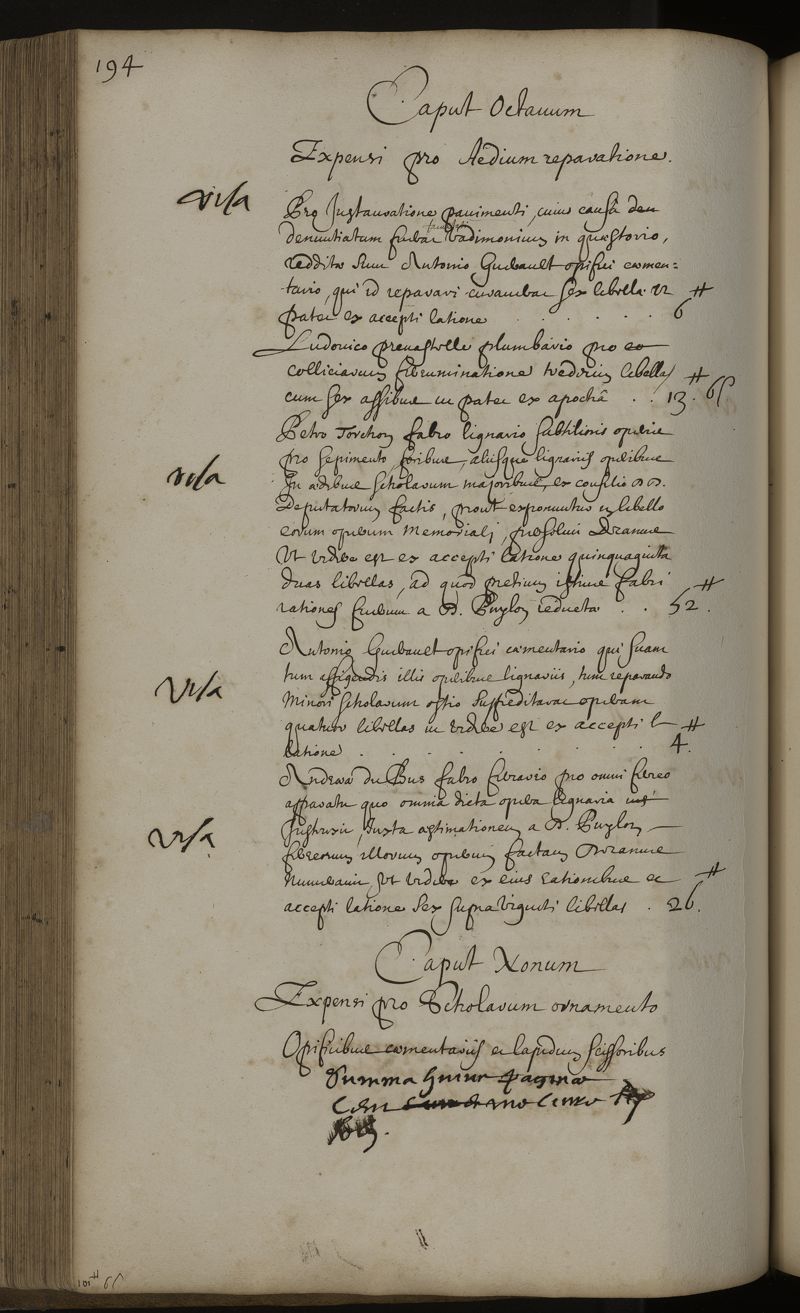 194
Caput Octavum
Expensi pro Aedium reparatione.
visa
Pro Instauratione pavimenti, cuius causâ
denuntiatum fuerat vadimonium in quaestorio,
reddita sunt Antonio Guibault opifici cemen=
tario, qui id reparari curaverat sex libellae ut #
patet ex accepti latione . . . . . . 6
Ludovico plumbario pro
colliciarum ferruminatione tredecim libellas #
cum sex assibus ut patet ex apochâ . . 13. 6ſ
Petro Torchon fabro lignario subtilioris operis
visa
pro sepimento, foribus, aliisque ligneis operibus
In aedibus scholarum majoribus, ex consilio DD.
Deputatorum factis, prout exponuntur in libello
eorum operum Memoriali, persolvi
Ut videre est ex accepti latione quinquaginta
duas libellas, ad quod pretium istius fabri #
rationes fuerunt a D. Puylon reductae . . 52.
Antonio Guibault opifici cementario qui suam
tum affigendis illis operibus ligneis, tum reparando
visa
Minori scholarum ostio suppeditarat operam
quatuor libellas ut videre est ex accepti #
latione . . . . . . . . . 4.
Andreae du Bus fabro ferrario pro omni ferreo
apparatu quo omnia dicta opera lignaria
visa
Instruxit, Juxta aestimationem a D. Puylon
ferreorum illorum operum factam
Numeravi, Ut videre ex eius rationibus et #
accepti latione sex supra viginti libellas . 26.
Caput Nonum
Expensi pro Scholarum ornamento
Opificibus cementariis et lapidum scissoribus
Summa huius paginae
101# 6ſ